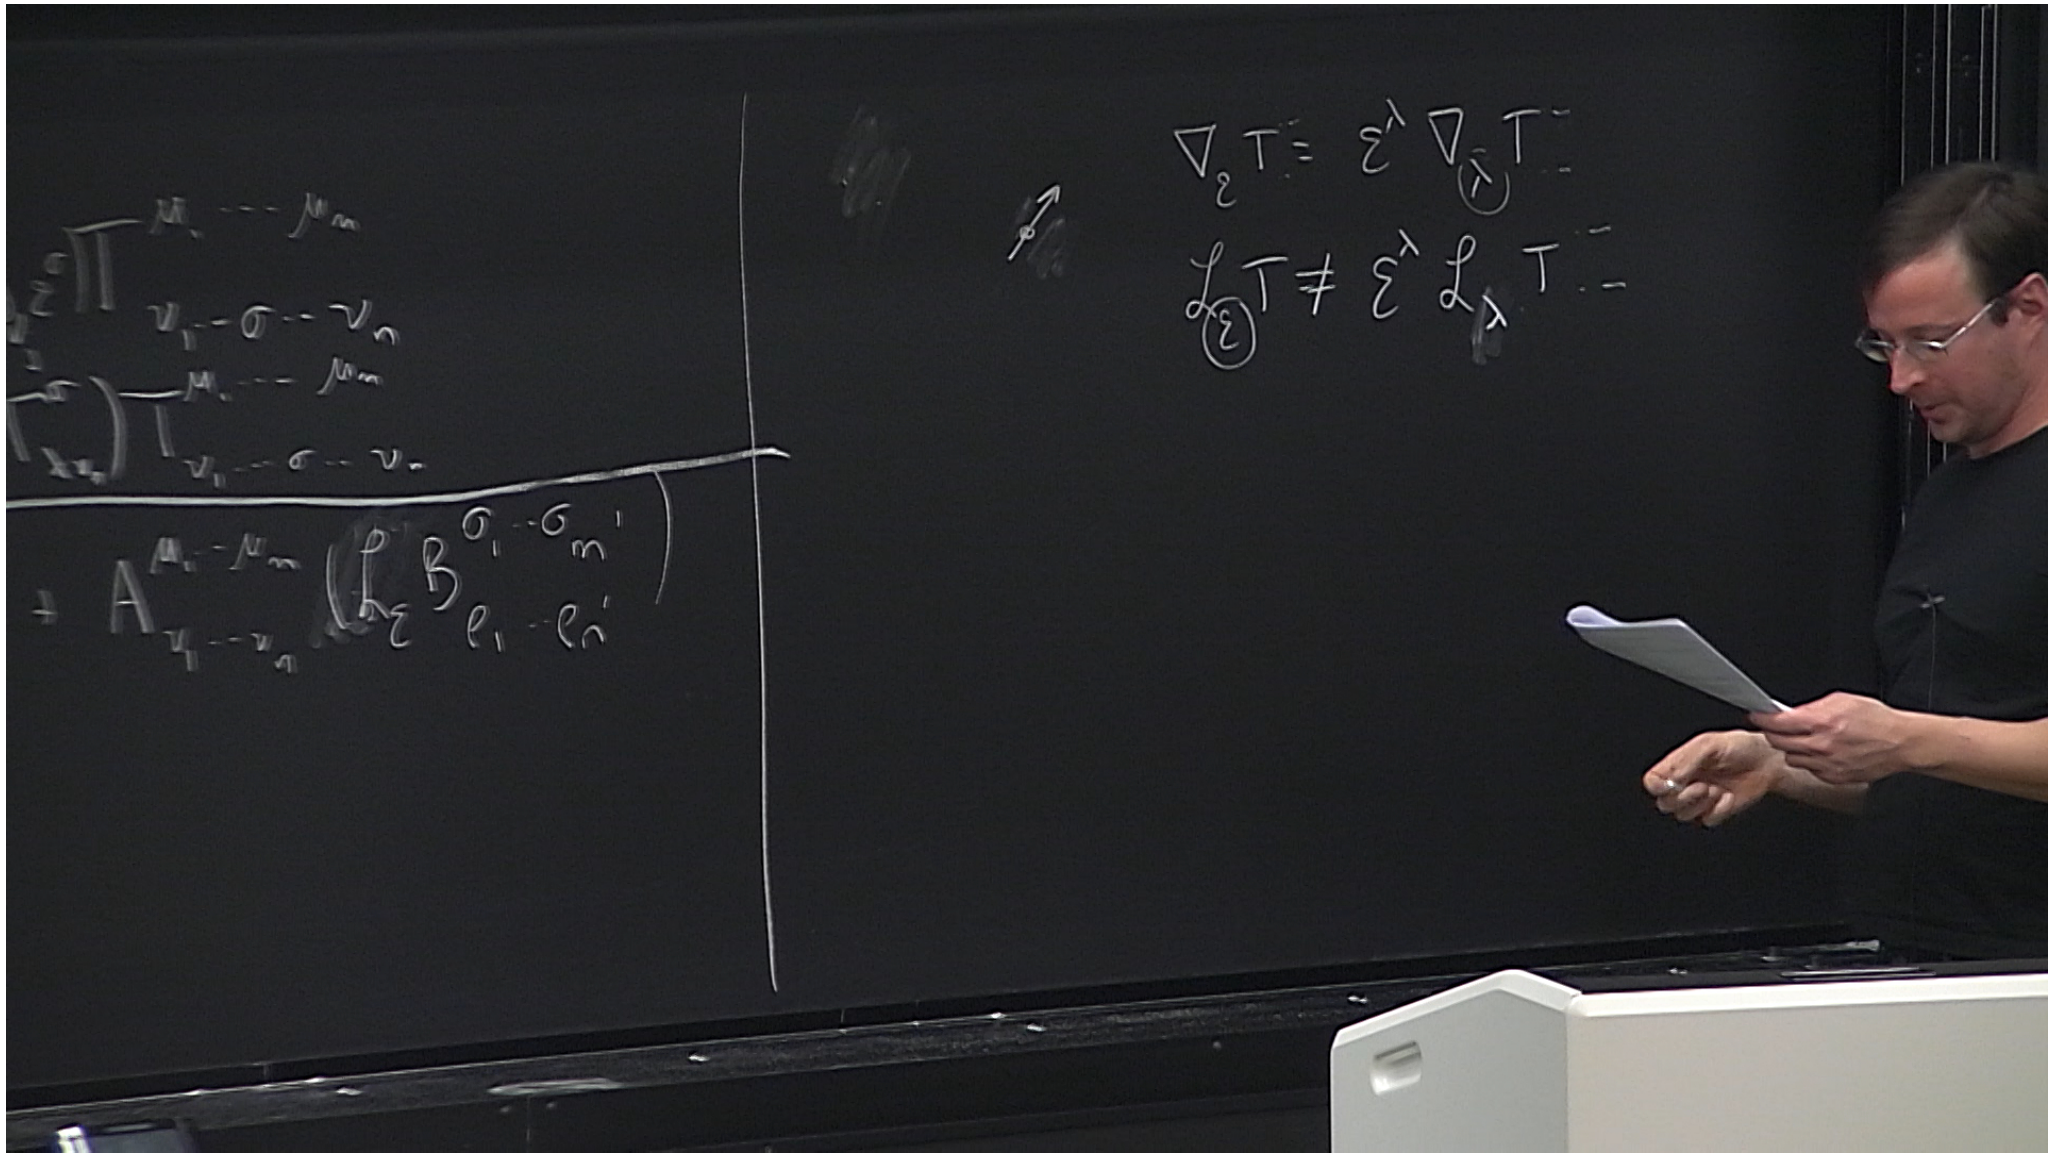 ξ^σ) T^{μ_1 ... μ_m}_{ν_1 ... σ ... ν_n}
Γ^σ_{λν_i}) T^{μ_1 ... μ_m}_{ν_1 ... σ ... ν_n}
+ A^{μ_1 ... μ_m}_{ν_1 ... ν_n} (ℒ_ξ B^{σ_1 ... σ_{m'}}_{ρ_1 ... ρ_{n'}})
∇_ξ T^{...}_{...} = ξ^λ ∇_λ T^{...}_{...}
ℒ_ξ T ≠ ξ^λ ℒ_λ T^{...}_{...}